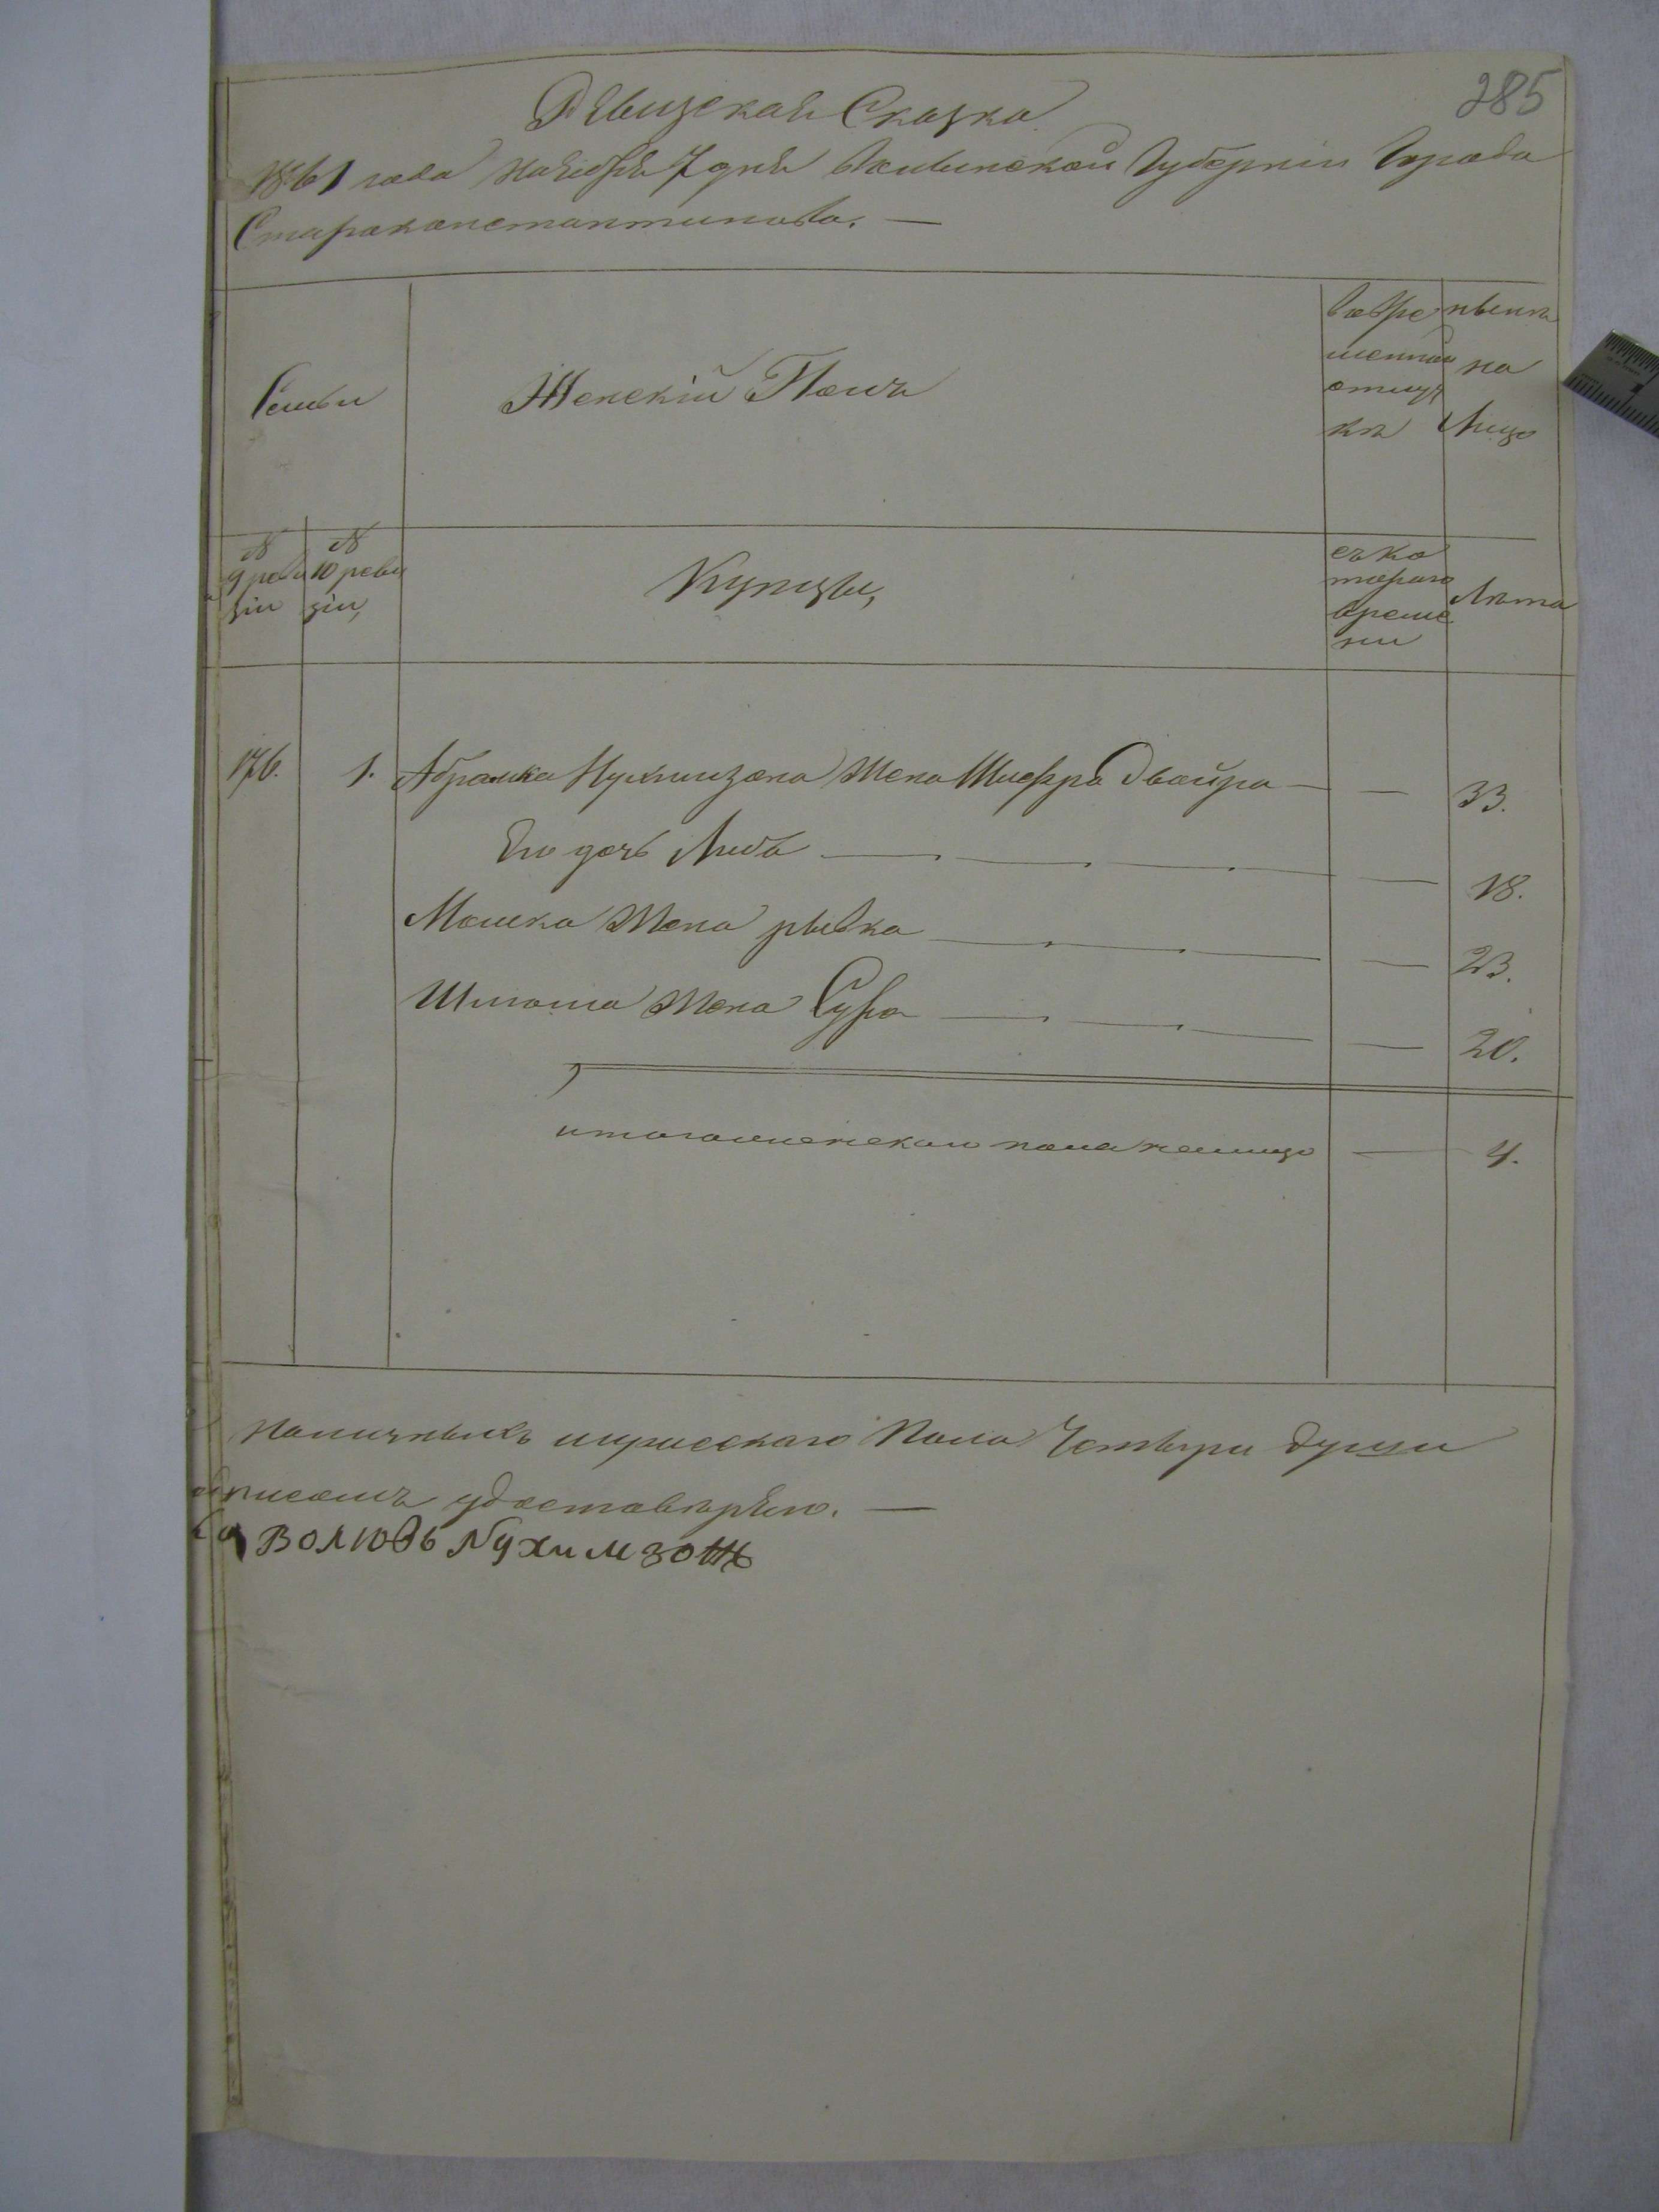 285
Ревизская Сказка
1861 года Ноября 7 дня Волынской Губернии Города
Стараконстантинова. —
Семьи
Женскій Полъ
Во вре
менной
отлуч
кѣ
нынѣ
на
Лицо
№
9 реви
зіи
№
10 реви
зіи,
Купцы,
съ ко
тораго
време
ни
Лѣта
176. 1. Абрамка Нухимзона Жена Шифра Двойра — — 33.
Его дочь Либа — — 18.
Мошка Жена рывка — — 23.
Жена Сура — — 20.
итого женскаго пола налицо — 4.
Наличныхъ Пола Четыри души
удостоверяю. —
Волювь Нухимзон